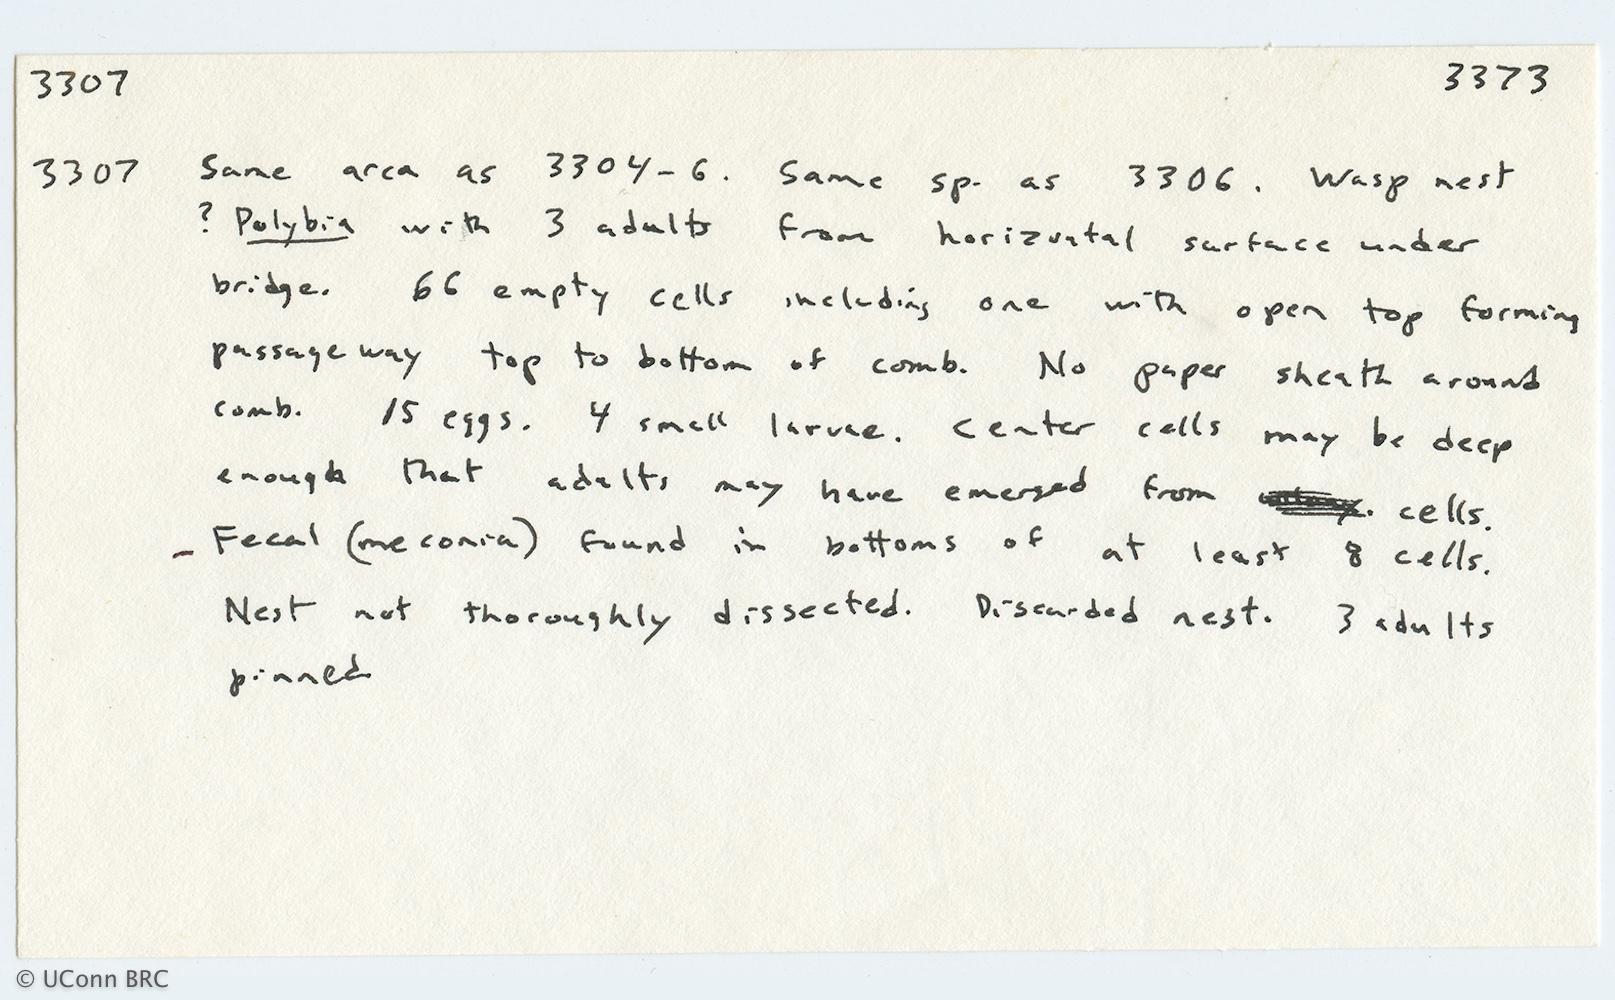 3307 3373
3307 Same area as 3304-6. Same sp. as 3306. Wasp nest
? Polybia with 3 adults from horizontal surface under
bridge. 66 empty cells including one with open top forming
passageway top to bottom of comb. No paper sheath around
comb. 15 eggs. 4 small larvae. Center cells may be deep
enough that adults may have emerged from cells.
- Fecal (meconia) found in bottoms of at least 8 cells.
Nest not thoroughly dissected. Discarded nest. 3 adults
pinned
© UConn BRC